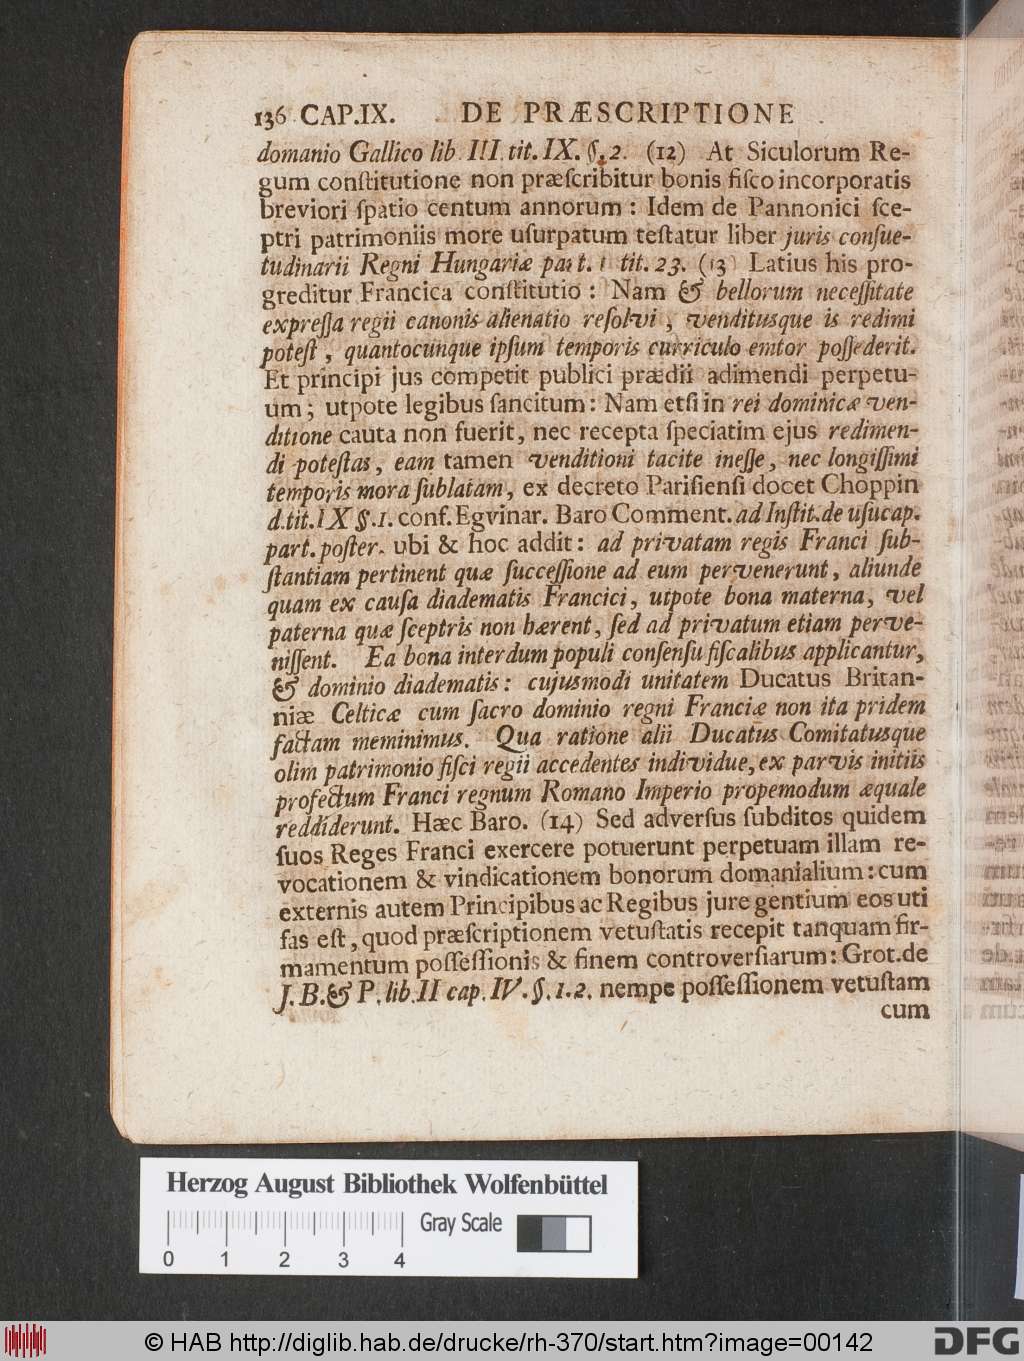 136 CAP.IX. DE PRÆSCRIPTIONE
domanio Gallico lib. III. tit. IX. §. 2. (12) At Siculorum Re-
gum conſtitutione non præſcribitur bonis fiſco incorporatis
breviori ſpatio centum annorum : Idem de Pannonici ſce-
ptri patrimoniis more uſurpatum teſtatur liber juris conſue-
tudinarii Regni Hungariæ part. 1 tit. 23. (13) Latius his pro-
greditur Francica conſtitutio : Nam & bellorum neceſſitate
expreſſa regii canonis alienatio reſolvi , venditusque is redimi
poteſt , quantocunque ipſum temporis curriculo emtor poſſederit.
Et principi jus competit publici prædii adimendi perpetu-
um ; utpote legibus ſancitum : Nam etſi in rei dominicæ ven-
ditione cauta non fuerit, nec recepta ſpeciatim ejus redimen-
di poteſtas, eam tamen venditioni tacite ineſſe, nec longiſſimi
temporis mora ſublatam, ex decreto Pariſienſi docet Choppin
d. tit. IX §. 1. conf. Egvinar. Baro Comment. ad Inſtit. de uſucap.
part. poſter. ubi & hoc addit : ad privatam regis Franci ſub-
ſtantiam pertinent quæ ſucceſſione ad eum pervenerunt, aliunde
quam ex cauſa diadematis Francici, utpote bona materna, vel
paterna quæ ſceptris non hærent, ſed ad privatum etiam perve-
niſſent. Ea bona interdum populi conſenſu fiſcalibus applicantur,
& dominio diadematis : cujusmodi unitatem Ducatus Britan-
niæ Celticæ cum ſacro dominio regni Franciæ non ita pridem
factam meminimus. Qua ratione alii Ducatus Comitatusque
olim patrimonio fiſci regii accedentes individue, ex parvis initiis
profectum Franci regnum Romano Imperio propemodum æquale
reddiderunt. Hæc Baro. (14) Sed adverſus ſubditos quidem
ſuos Reges Franci exercere potuerunt perpetuam illam re-
vocationem & vindicationem bonorum domanialium : cum
externis autem Principibus ac Regibus jure gentium eos uti
fas eſt, quod præſcriptionem vetuſtatis recepit tanquam fir-
mamentum poſſeſſionis & finem controverſiarum : Grot. de
J. B. & P. lib. II cap. IV. §. 1. 2. nempe poſſeſſionem vetuſtam
cum
Herzog August Bibliothek Wolfenbüttel
Gray Scale
0 1 2 3 4
© HAB http://diglib.hab.de/drucke/rh-370/start.htm?image=00142
DFG